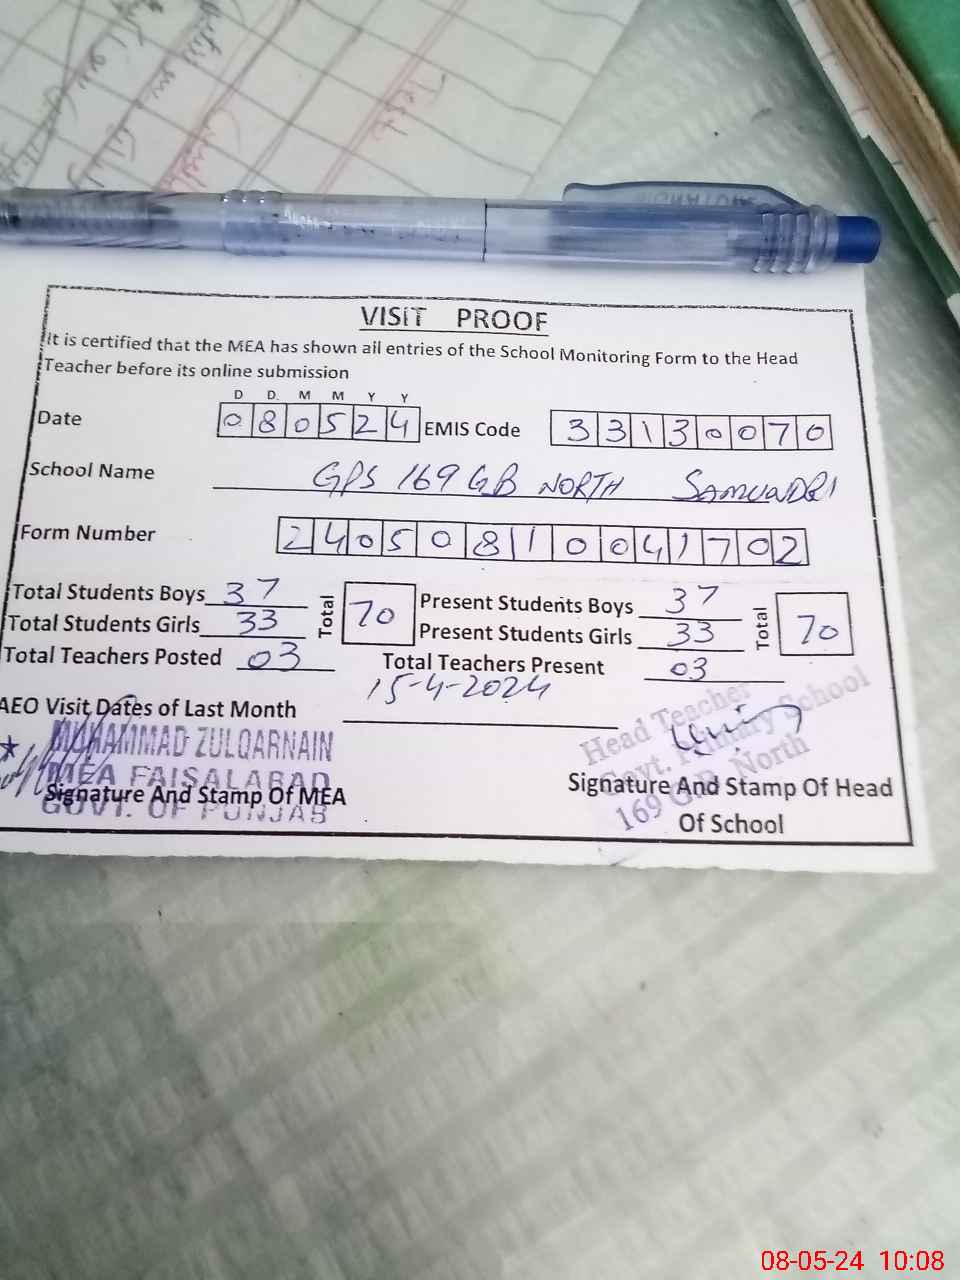 SIGNATURE
VISIT PROOF
It is certified that the MEA has shown all entries of the School Monitoring Form to the Head
Teacher before its online submission
D D M M Y Y
Date 0 8 0 5 2 4 EMIS Code 3 3 1 3 0 0 7 0
School Name GPS 169 GB NORTH SAMUNDRI
Form Number 2 4 0 5 0 8 1 0 0 4 1 7 0 2
Total Students Boys 37 Total 70 Present Students Boys 37 Total 70
Total Students Girls 33 Present Students Girls 33
Total Teachers Posted 03 Total Teachers Present 03
AEO Visit Dates of Last Month 15-4-2024
MUHAMMAD ZULQARNAIN
MEA FAISALABAD
GOVT. OF PUNJAB
Signature And Stamp Of MEA
Head Teacher
Govt. Primary School
169 G.B. North
Signature And Stamp Of Head
Of School
08-05-24 10:08